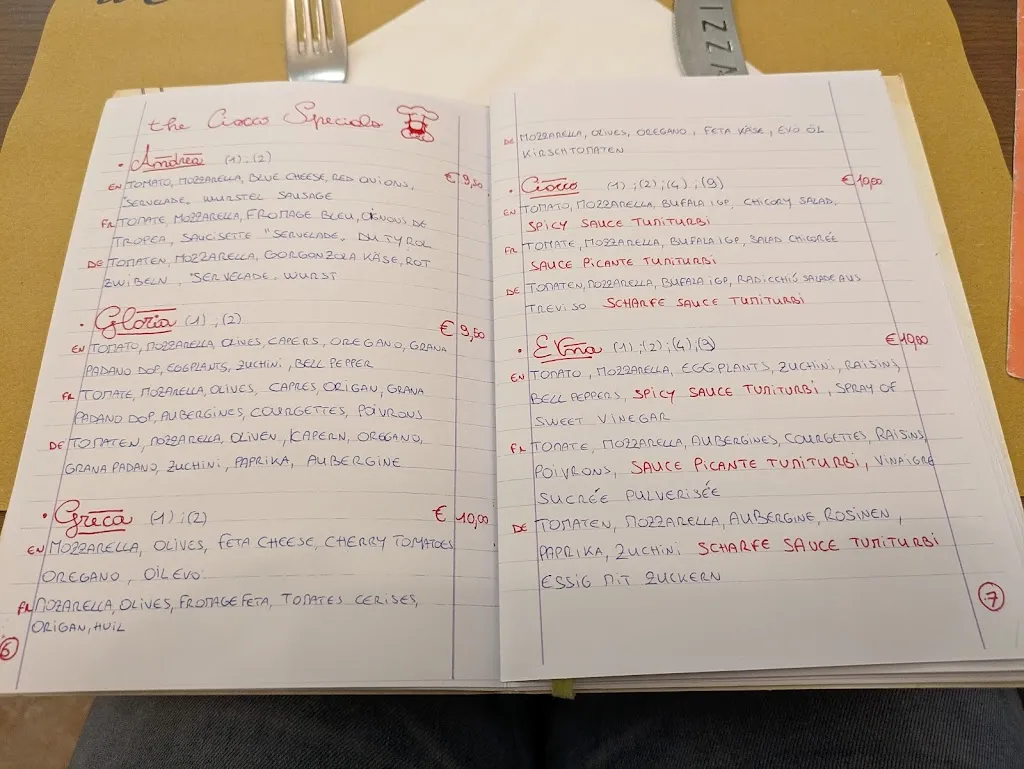 the Ciocco Specials
• Andrea (1), (2) € 9,50
EN TOMATO, MOZZARELLA, BLUE CHEESE, RED ONIONS,
"SERVELADE, WURSTEL SAUSAGE
FR TOMATE MOZZARELLA, FROMAGE BLEU, OIGNOUS DE
TROPEA, SAUCISETTE "SERVELADE„ DU TYROL
DE TOMATEN, MOZZARELLA, GORGONZOLA KÄSE, ROT
ZWIBELN, "SERVELADE„ WURST
• Gloria (1), (2) € 9,50
EN TOMATO, MOZZARELLA, OLIVES, CAPERS, OREGANO, GRANA
PADANO DOP, EGGPLANTS, ZUCHINI, BELL PEPPER
FR TOMATE, MOZARELLA, OLIVES, CAPRES, ORIGAN, GRANA
PADANO DOP, AUBERGINES, COURGETTES, POIVRONS
DE TOMATEN, MOZZARELLA, OLIVEN, KAPERN, OREGANO,
GRANA PADANO, ZUCHINI, PAPRIKA, AUBERGINE
• Greca (1) ; (2) € 10,00
EN MOZZARELLA, OLIVES, FETA CHEESE, CHERRY TOMATOES
OREGANO, OIL EVO
FR MOZARELLA, OLIVES, FROMAGE FETA, TOMATES CERISES,
ORIGAN, HUIL
6
DE MOZZARELLA, OLIVES, OREGANO, FETA KÄSE, EVO ÖL
KIRSCHTOMATEN
• Ciocco (1) ; (2) ; (4) ; (9) € 10,00
EN TOMATO, MOZZARELLA, BUFALA IGP, CHICORY SALAD,
SPICY SAUCE TUMITURBI
FR TOMATE, MOZZARELLA, BUFALA IGP, SALAD CHICORÉE
SAUCE PICANTE TUMITURBI
DE TOMATEN, MOZZARELLA, BUFALA IGP, RADICCHIÓ SALADE AUS
TREVISO SCHARFE SAUCE TUMITURBI
• Etna (1), (2) ; (4) ; (9) € 10,00
EN TOMATO, MOZZARELLA, EGGPLANTS, ZUCHINI, RAISINS,
BELL PEPPERS, SPICY SAUCE TUMITURBI, SPRAY OF
SWEET VINEGAR
FR TOMATE, MOZZARELLA, AUBERGINES, COURGETTES, RAISINS,
POIVRONS, SAUCE PICANTE TUMITURBI, VINAIGRE
SUCRÉE PULVERISÉE
DE TOMATEN, MOZZARELLA, AUBERGINE, ROSINEN,
PAPRIKA, ZUCHINI SCHARFE SAUCE TUMITURBI
ESSIG MIT ZUCKERN
7